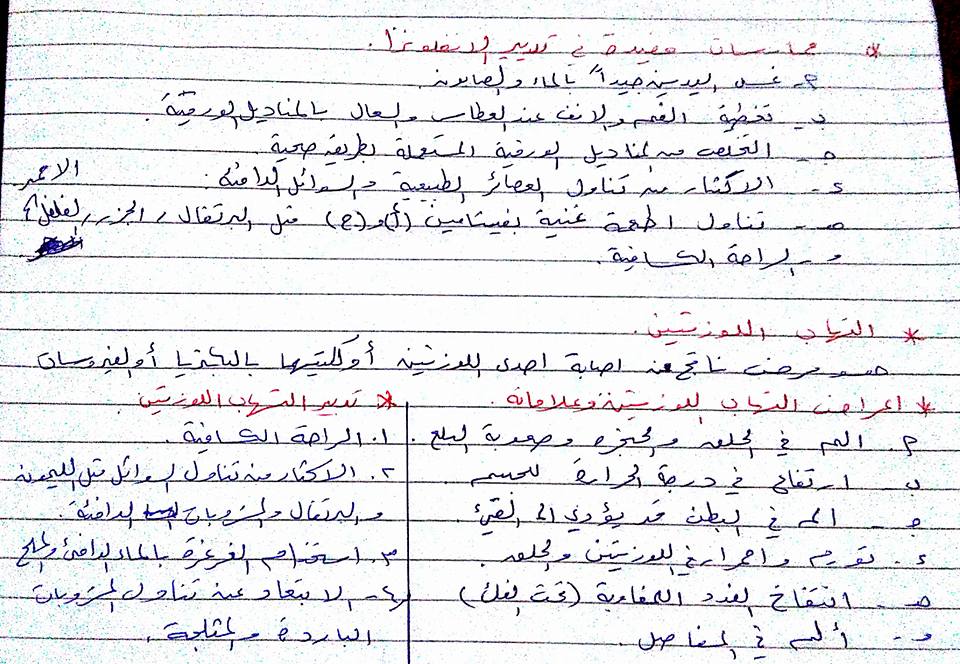 * ممارسات مفيدة في تدبير الانفلونزا.
أ- غسل اليدين جيداً بالماء والصابون.
ب- تغطية الفم والانف عند العطاس والسعال بالمناديل الورقية.
ج- التخلص من المناديل الورقية المستعملة بطريقة صحية.
د- الاكثار من تناول العصائر الطبيعية والسوائل الدافئة.
هـ- تناول اطعمة غنية بفيتامين (أ) و (ج) مثل البرتقال، الجزر، الفلفل الاحمر
و- الراحة الكافية.
* التهاب اللوزتين.
هو مرض ناتج عن اصابة احدى اللوزتين أو كلتيهما بالبكتريا أو الفيروسات
* اعراض التهاب اللوزتين وعلاماته.
أ. الم في الحلق والحنجرة وصعوبة البلع.
ب- ارتفاع في درجة الحرارة للجسم
ج- الم في البطن قد يؤدي الى القيئ
د. تورم واحمرار في اللوزتين والحلق.
هـ- انتفاخ الغدد اللمفاوية (تحت الفك)
و- ألم في المفاصل.
* تدبير التهاب اللوزتين.
١. الراحة الكافية.
٢. الاكثار من تناول السوائل مثل الليمون
والبرتقال والمشروبات الدافئة.
٣. استخدام الغرغرة بالماء الدافئ والملح
٤- الابتعاد عن تناول المشروبات
الباردة والمثلجة.